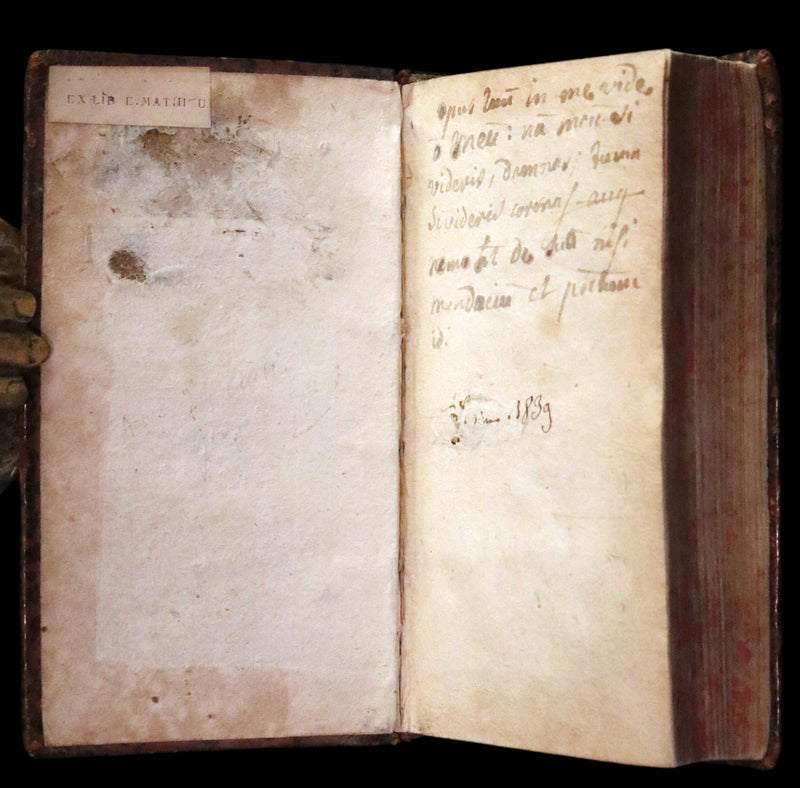 EX-LIB E. MATHIEU
opus tuū in me vide
ō meū: nā meū si
videris, damnas; tuum
si videris coronas. aug
nemo ht de suo nisi
mendaciū et peccatum
id:
1839